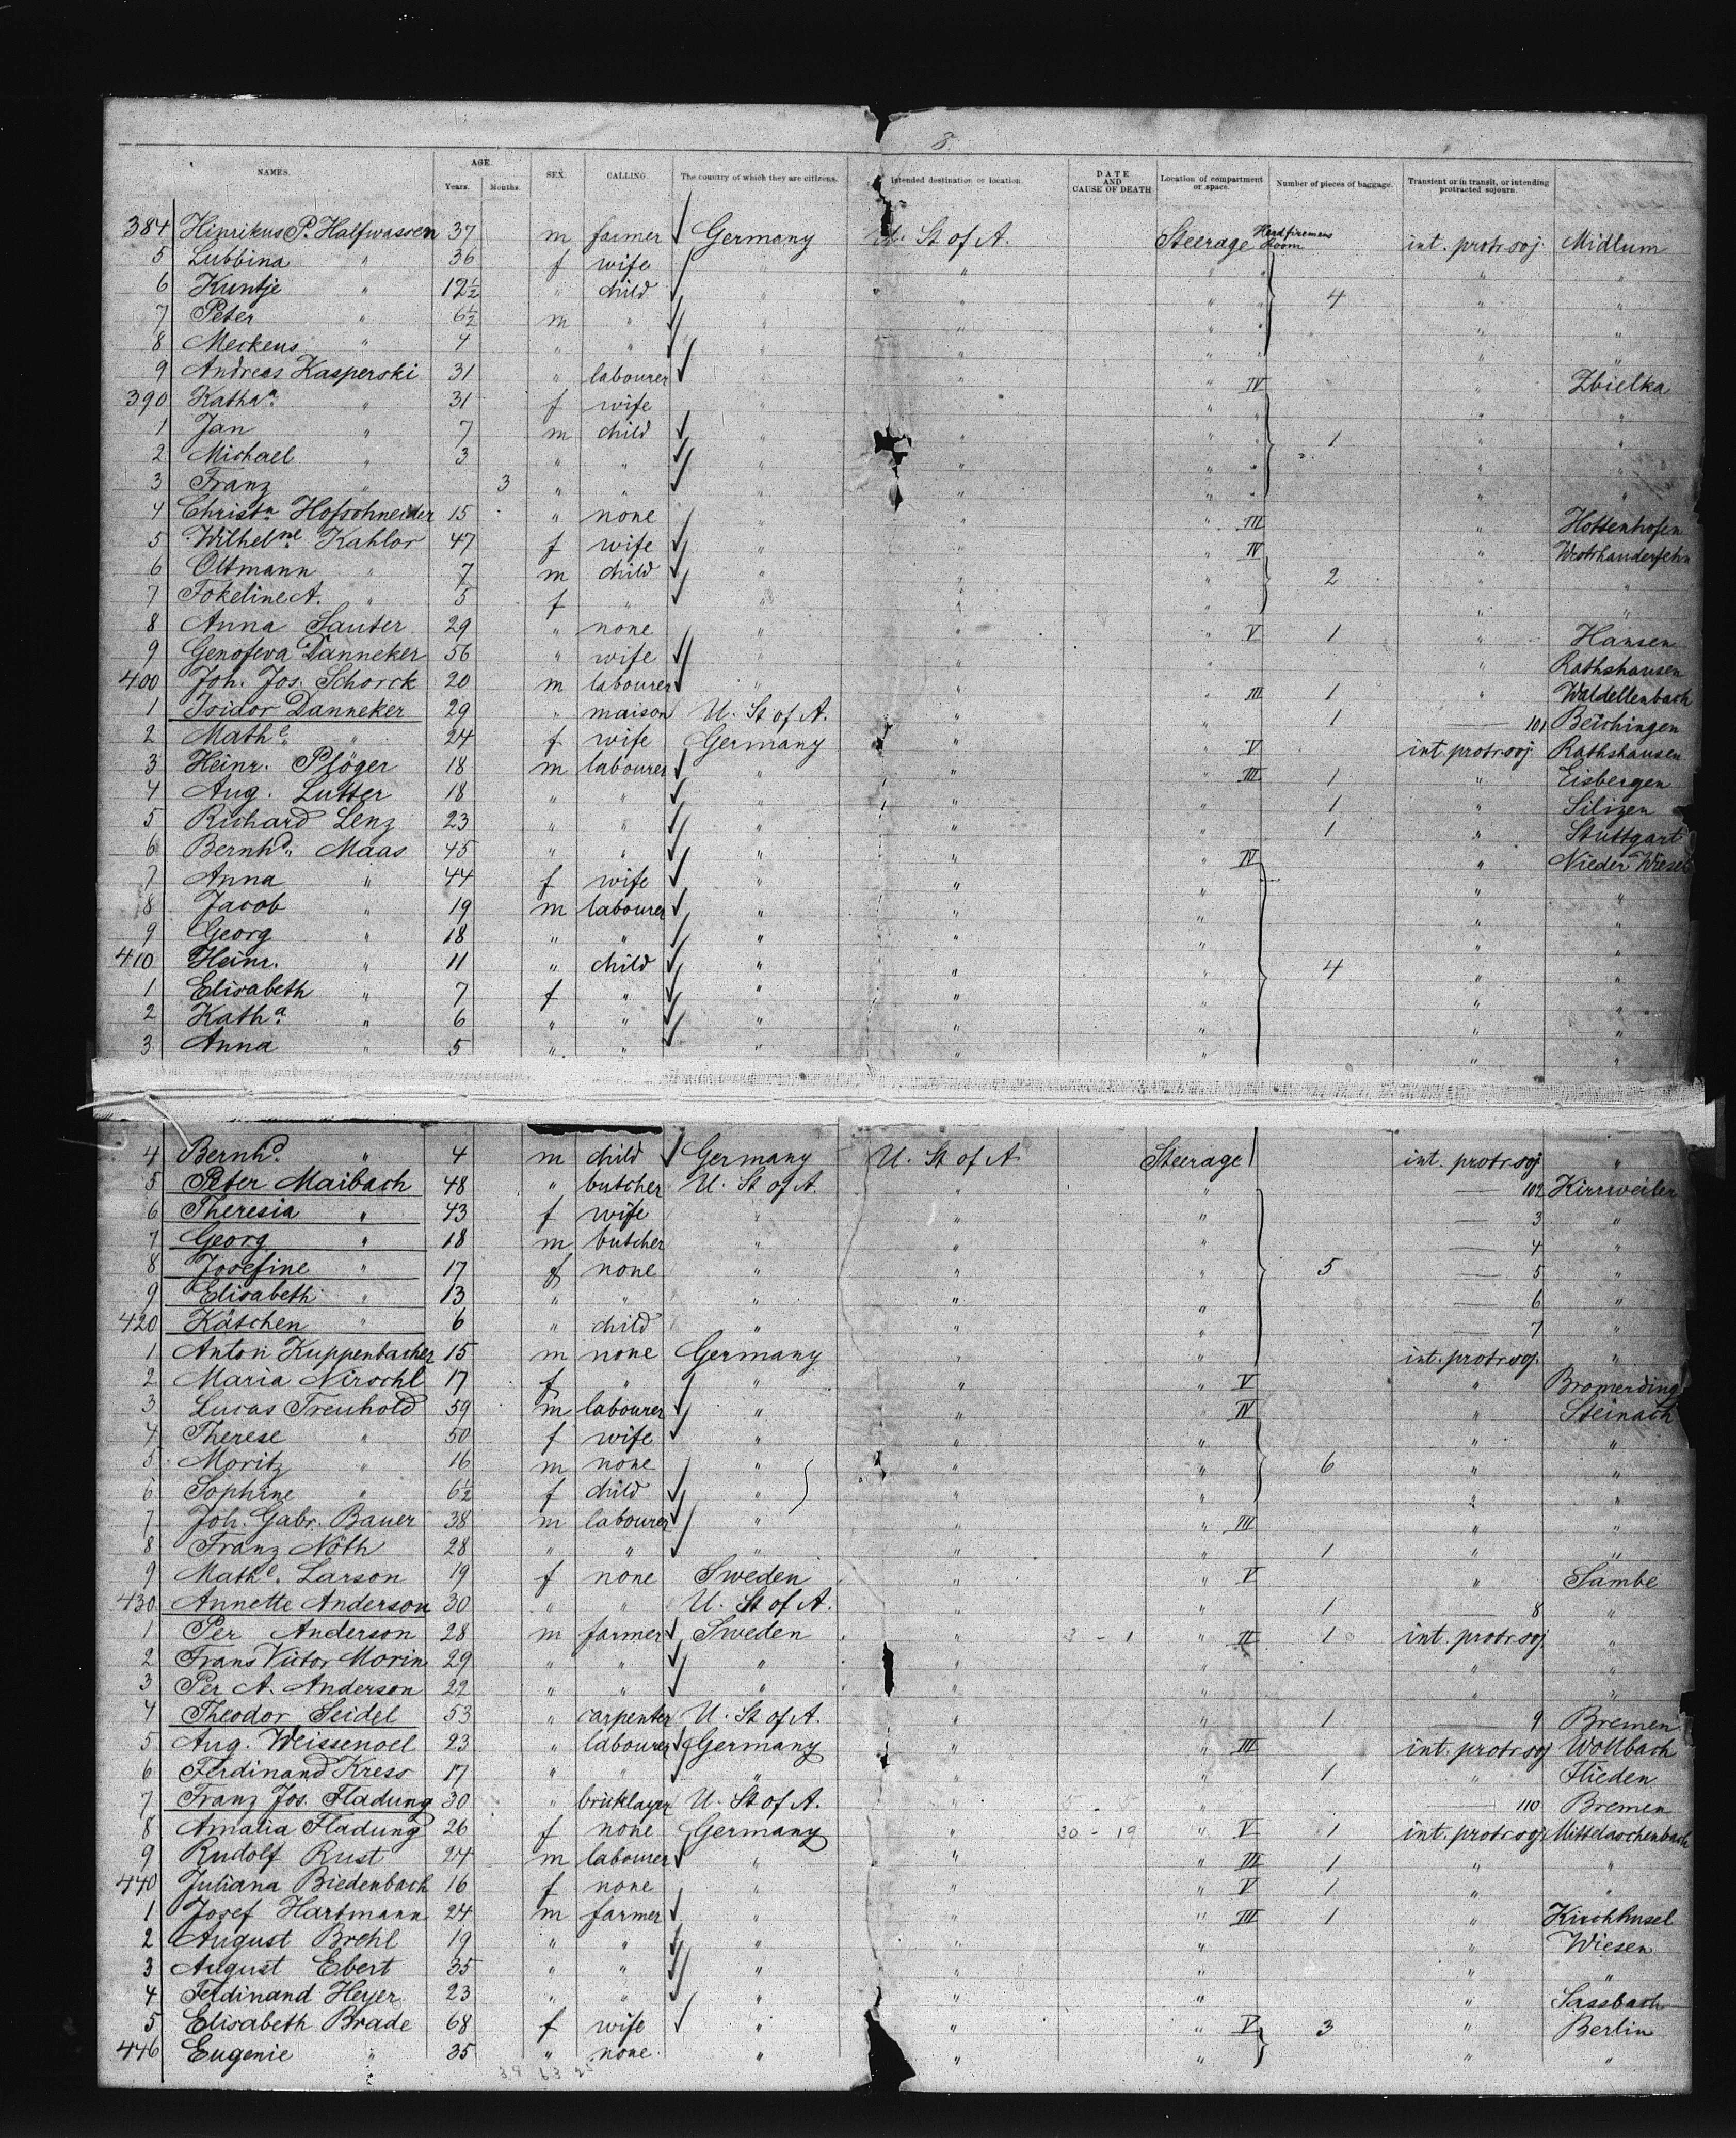 8.
NAMES. AGE. Years. Months. SEX. CALLING. The country of which they are citizens. Intended destination or location. DATE AND CAUSE OF DEATH Location of compartment or space. Number of pieces of baggage. Transient or in transit, or intending protracted sojourn.
384 Hinrikus P. Halfwassen 37 m farmer Germany U. St of A. Steerage Room int. protr. soj. Midlum
5 Lubbina " 36 f wife " " " " " "
6 Kuntje " 12½ " child " " " " 4 " "
7 Peter " 6½ m " " " " " " "
8 Meckens " 4 " " " " " " "
9 Andreas Kasperski 31 " labourer " " " IV " Zbielka
390 Kathaª " 31 f wife " " " " "
1 Jan " 7 m child " " " " 1 " "
2 Michael " 3 " " " " " " " "
3 Franz " 3 " " " " " " "
4 Christª Hofschneider 15 " none " " " III " Hottenhofen
5 Wilhelᵐᵉ Kahlor 47 f wife " " " IV " Westrhauderfehn
6 Oltmann " 7 m child " " " 2 " "
7 Fokeline A. " 5 f " " " " " "
8 Anna Sauter 29 " none " " " V 1 " Hansen
9 Genofeva Danneker 56 " wife " " " " Rathshausen
400 Joh. Jos. Schorck 20 m labourer " " " III 1 " Waldellenbach
1 Isidor Danneker 29 " maison U. St of A. " " 1 — 101 Beishingen
2 Mathᵉ " 24 f wife Germany " " V int. protr. soj. Rathshausen
3 Heinr. Plöger 18 m labourer " " " III 1 " Eisbergen
4 Aug. Lutter 18 " " " " " 1 " Silixen
5 Richard Lenz 23 " " " " " 1 " Stuttgart
6 Bernhᵈ Maas 45 " " " " " IV " Nieder Wiesel
7 Anna " 44 f wife " " " " "
8 Jacob " 19 m labourer " " " " "
9 Georg " 18 " " " " " " "
410 Heinr. " 11 " child " " " 4 " "
1 Elisabeth " 7 f " " " " " "
2 Kathª " 6 " " " " " " "
3 Anna " 5 " " " " " " "
4 Bernhᵈ " 4 m child Germany U. St of A Steerage int. protr. soj "
5 Peter Maibach 48 " butcher U. St of A. " " — 102 Kirrweiler
6 Theresia " 43 f wife " " " — 3 "
7 Georg " 18 m butcher " " " — 4 "
8 Josefine " 17 f none " " " 5 — 5 "
9 Elisabeth " 13 " " " " " — 6 "
420 Kätchen " 6 " child " " " — 7 "
1 Anton Kuppenbacher 15 m none Germany " " int. protr. soj. "
2 Maria Nirschl 17 f " " " " V " Bromerding
3 Lucas Treuhold 59 m labourer " " " IV " Steinach
4 Therese " 50 f wife " " " " "
5 Moritz " 16 m none " " " 6 " "
6 Sophine " 6½ f child " " " " "
7 Joh. Gabr. Bauer 38 m labourer " " " III " "
8 Franz Nöth 28 " " " " " 1 " "
9 Mathᵉ. Larson 19 f none Sweden " " V " Sambe
430 Annette Anderson 30 " " U. St of A. " " 1 — 8 "
1 Per Anderson 28 m farmer Sweden " 3 - 1 " II 1 int. protr. soj. "
2 Frans Victor Morin 29 " " " " " " "
3 Per A. Anderson 22 " " " " " " "
4 Theodor Seidel 53 " carpenter U. St of A. " " 1 — 9 Bremen
5 Aug. Weissenoel 23 " labourer Germany " " III int. protr. soj Wollbach
6 Ferdinand Kress 17 " " " " " 1 " Flieden
7 Franz Jos. Fladung 30 " bricklayer U. St of A. " " — 110 Bremen
8 Amalia Fladung 26 f none Germany " 30 - 19 " V 1 int. protr. soj. Mittelaschenbach
9 Rudolf Rust 24 m labourer " " " III 1 " "
440 Juliana Biedenbach 16 f none " " " V 1 " "
1 Josef Hartmann 24 m farmer " " " III 1 " Kirchhasel
2 August Brehl 19 " " " " " " Wiesen
3 August Ebert 35 " " " " " " "
4 Ferdinand Heyer 23 " " " " " " Sassbach
5 Elisabeth Brade 68 f wife " " " V 3 " Berlin
446 Eugenie " 35 " none " " " " "